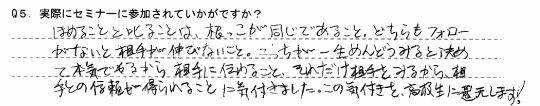 Q5. 実際にセミナーに参加されていかがですか？
ほめることと叱ることは、根っこが同じであること。どちらもフォロー
がないと相手が伸びないこと。こっちが一生めんどうみると決め
て本気でやるから、相手に伝わること。それだけ相手をみるから、相
手との信頼も得られることに気付きました。この気付きを、高校生に還元します!